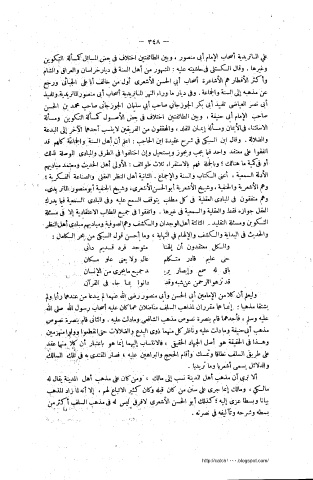 — ٣٤٨ —
على الماتريدية أصحاب الإمام أبى منصور، وبين الطائفتين اختلاف فى بعض المسائل كمسألة التكوين
وغيرها. وقال الكستلى فى حاشيته عليه: المشهور من أهل السنة فى ديار خراسان والعراق والشام
وأكثر الأقطار هم الأشاعرة أصحاب أبى الحسن الأشعرى أول من خالف أبا على الجبائى ورجع
عن مذهبه إلى السنة والجماعة. وفى ديار ما وراء النهر الماتريدية أصحاب أبى منصور الماتريدى تلميذ
أبى نصر العياضى تلميذ أبى بكر الجوزجانى صاحب أبى سليمان الجوزجانى صاحب محمد بن الحسن
صاحب الإمام أبى حنيفة. وبين الطائفتين اختلاف فى بعض الأصول كمسألة التكوين ومسألة
الاستثناء فى الإيمان ومسألة إيمان المقلد، والمحققون من الفريقين لا ينسب أحدهما الآخر إلى البدعة
والضلالة. وقال ابن السبكى فى شرح عقيدة ابن الحاجب: اعلم أن أهل السنة والجماعة كلهم قد
اتفقوا على معتقد واحد فيما يجب ويجوز ويستحيل وإن اختلفوا فى الطرق والمبادى الموصلة لذلك
أو فى لمية ما هنالك، وبالجملة فهم بالاستقراء ثلاث طوائف: الأولى أهل الحديث ومعتمد مباديهم
الأدلة السمعية. أعنى الكتاب والسنة والإجماع. الثانية أهل النظر العقلى والصناعة الفكرية؛
وهم الأشعرية والحنفية، وشيخ الأشعرية أبو الحسن الأشعرى، وشيخ الحنفية أبو منصور الماتريدى.
وهم متفقون فى المبادى العقلية فى كل مطلب يتوقف السمع عليه وفى المبادى السمعية فيما يدرك
العقل جوازه فقط والعقلية والسمعية فى غيرها. واتفقوا فى جميع المطالب الاعتقادية إلا فى مسألة
التكوين ومسألة التقليد. الثالثة أهل الوجدان والكشف وهم الصوفية ومباديهم مبادى أهل النظر
والحديث فى البداية والكشف والإلهام فى النهاية، وما أحسن قول السبكى من بحر الكامل:
والكل معتقدون أن إلهنا متوحد فرد قديم دانى
حى عليم قادر متكلم عال ولا يعنى علو مكان
باق له سمع وإبصار يريد جميع ما يجرى من الإنسان
وليعلم أن كلا من الإمامين أبى الحسن وأبى منصور رضى الله عنهما لم يبدعا من عندهما رأيا ولم
يشتقا مذهبا؛ إنما هما مقرران لمذهب السلف مناضلان عما كان عليه أصحاب رسول الله صلى الله
عليه وسلم، فأحدهما قام بنصرة نصوص مذهب الشافعى وما دلت عليه. والثانى قام بنصرة نصوص
مذهب أبى حنيفة وما دلت عليه وناظر كل منهما ذوى البدع والضلالات حتى انقطعوا وولوا منهزمين
وهذا فى الحقيقة هو أصل الجهاد الحقيقى، فالانتساب إليهما إنما هو باعتبار أن كلا منهما عقد
على طريق السلف نطاقا وتمسك وأقام الحجج والبراهين عليه، فصار المقتدى به فى تلك المسالك
والدلائل يسمى أشعريا وماتريديا.
ألا ترى أن مذهب أهل المدينة نسب إلى مالك، ومن كان على مذهب أهل المدينة يقال له
مالكى، ومالك إنما جرى على سنن من كان قبله وكان كثير الاتباع لهم. إلا أنه لما زاد المذهب
بيانا وبسطا عزى إليه؛ كذلك أبو الحسن الأشعرى لا فرق ليس له فى مذهب السلف أكثر من
بسطه وشرحه وتأليفه فى نصرته.